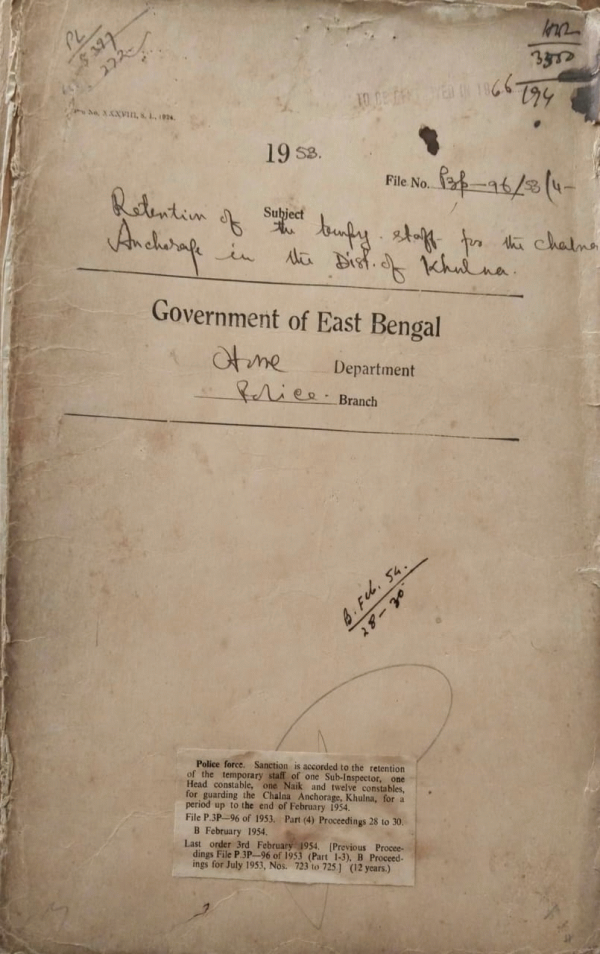 PL
5397
272
1953.
File No. P3p-96/53(4-
Subject
Retention of the tempy. staff for the Chalna
Anchorage in the Dist. of Khulna.
Government of East Bengal
Home Department
Police. Branch
B. Feb. 54.
28-30
66
194
Police force. Sanction is accorded to the retention
of the temporary staff of one Sub-Inspector, one
Head constable, one Naik and twelve constables,
for guarding the Chalna Anchorage, Khulna, for a
period up to the end of February 1954.
File P.3P—96 of 1953. Part (4) Proceedings 28 to 30.
B February 1954.
Last order 3rd February 1954. [Previous Procee-
dings File P.3P—96 of 1953 (Part 1-3), B Proceed-
ings for July 1953, Nos. 723 to 725] (12 years.)